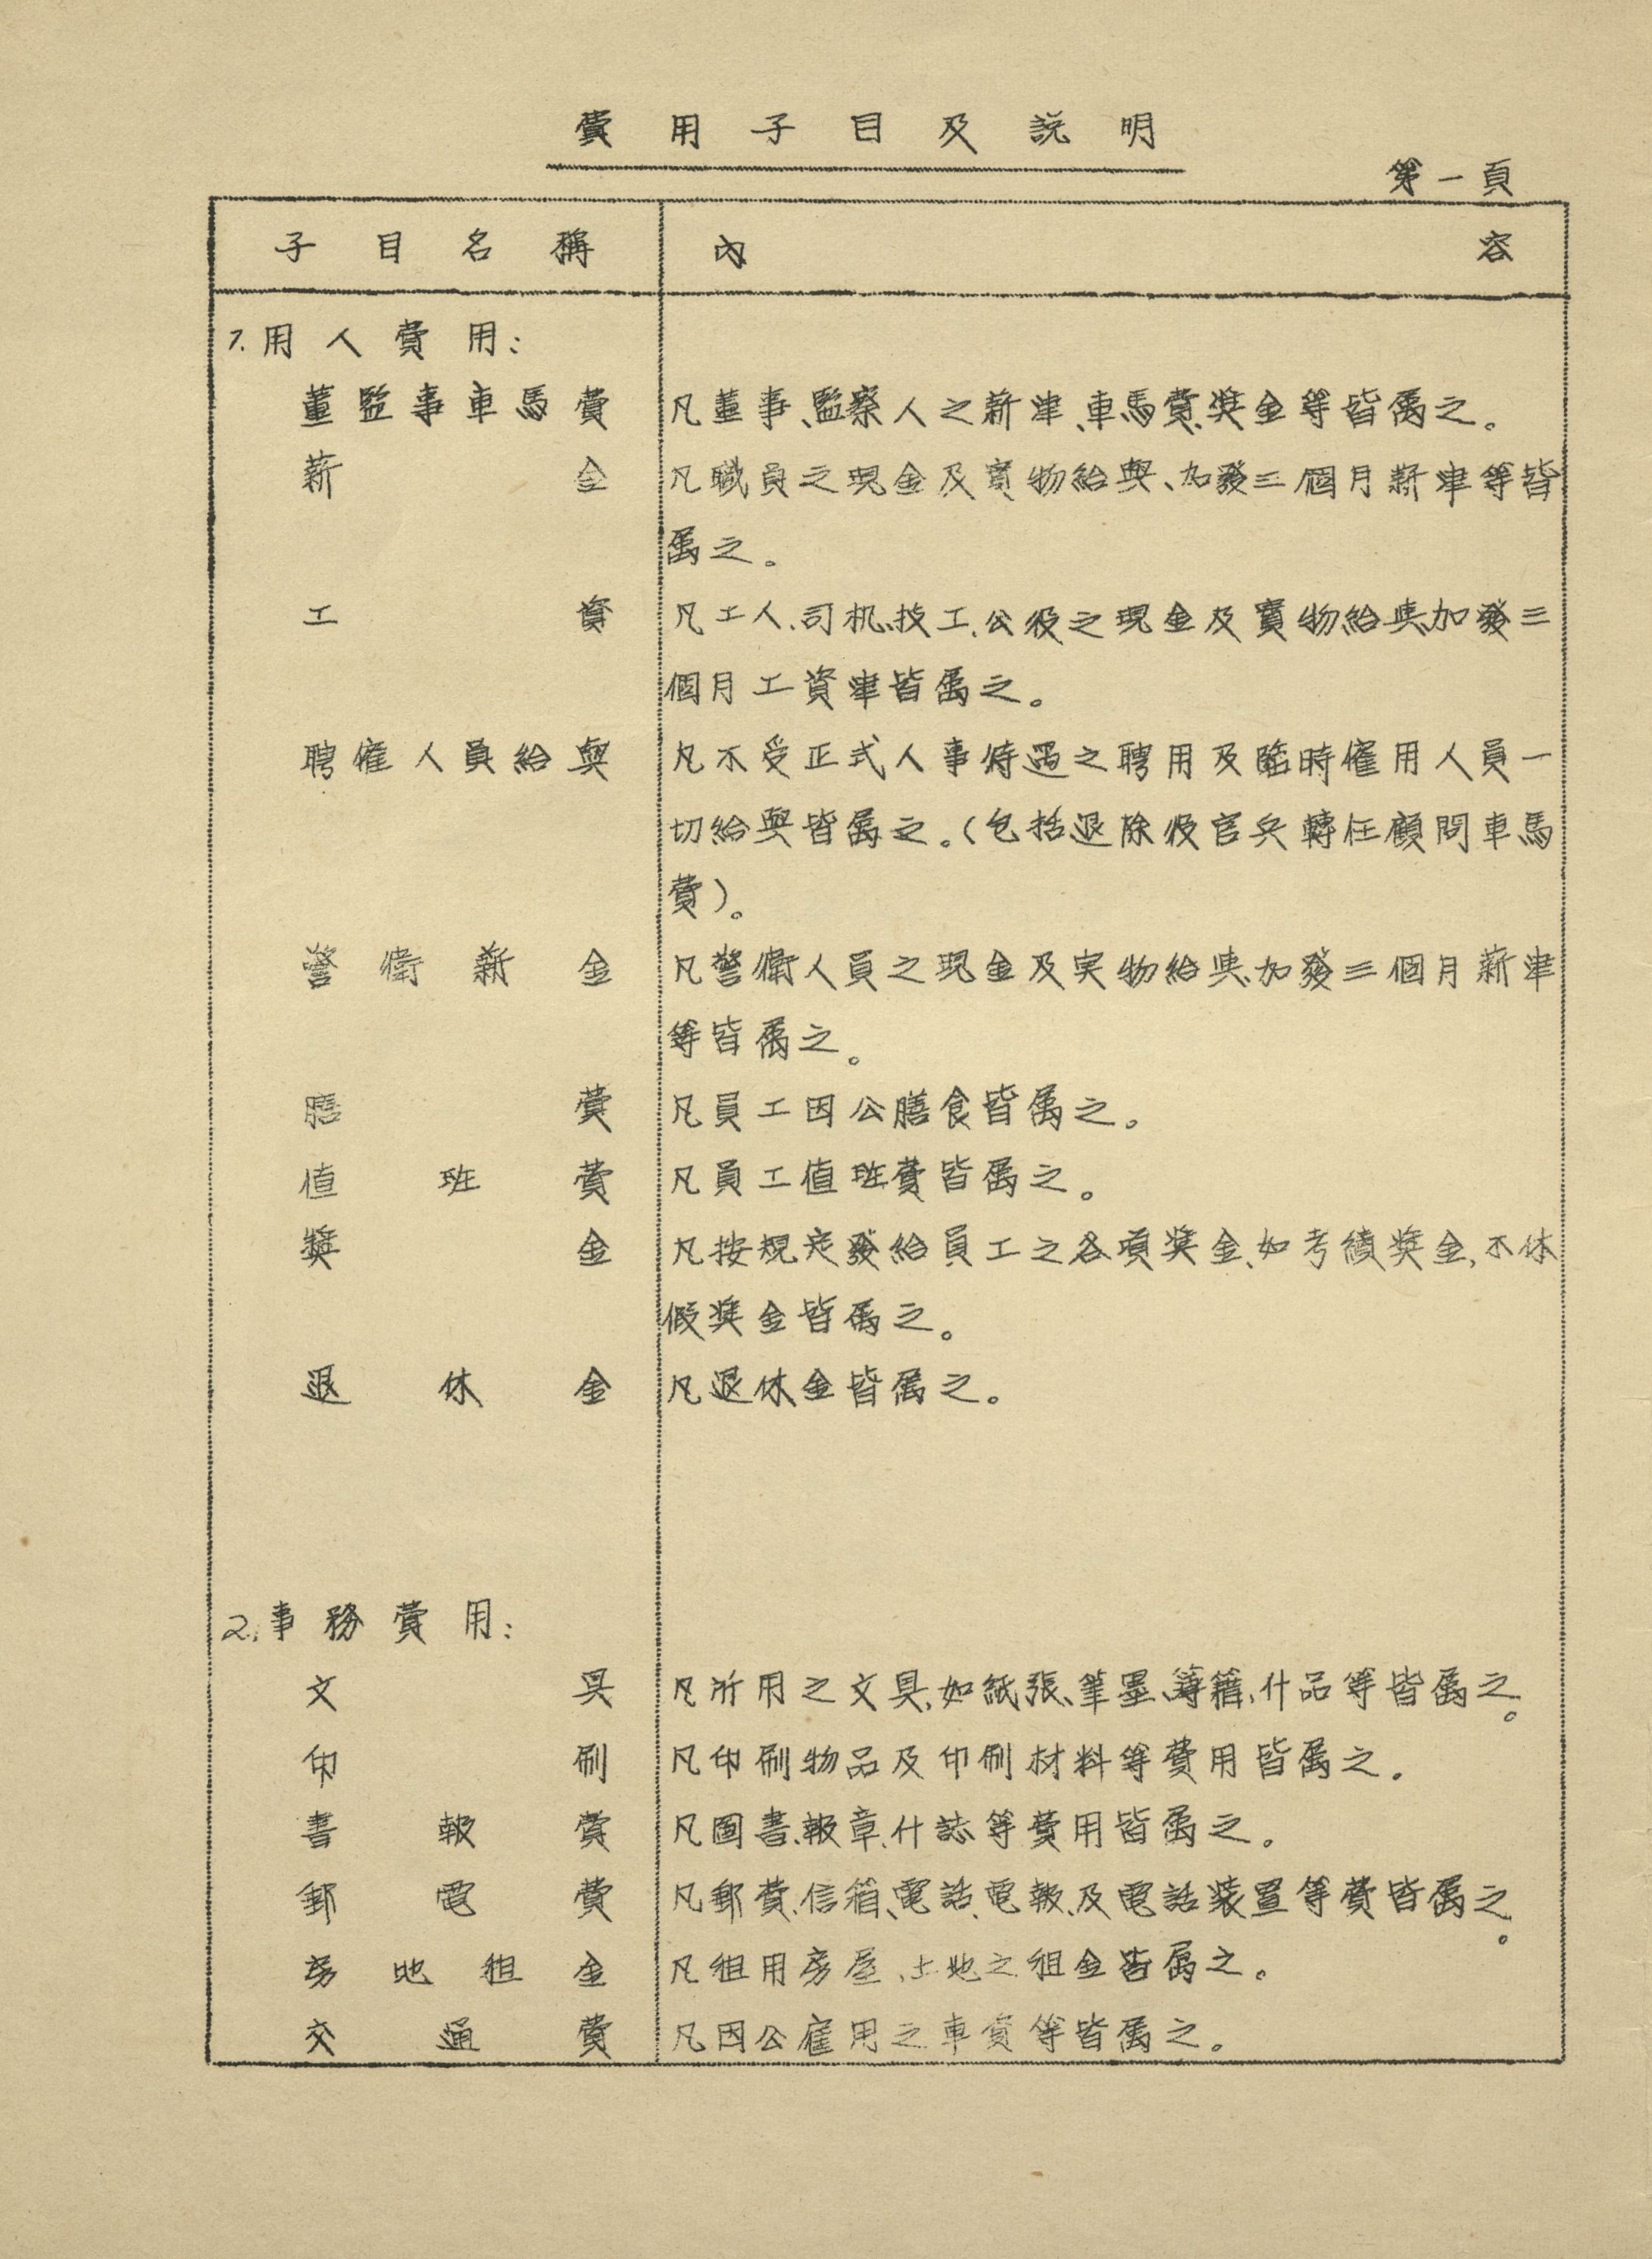 費用子目及說明
第一頁
子目名稱 內容
1.用人費用：
董監事車馬費 凡董事、監察人之薪津、車馬費、獎金等皆屬之。
薪金 凡職員之現金及實物給與、加發三個月薪津等皆
屬之。
工資 凡工人、司机、技工、公役之現金及實物給與、加發三
個月工資津皆屬之。
聘雇人員給與 凡不受正式人事待遇之聘用及臨時雇用人員一
切給與皆屬之。(包括退除役官兵轉任顧問車馬
費)。
警衛薪金 凡警衛人員之現金及实物給與、加發三個月薪津
等皆屬之。
膳費 凡員工因公膳食皆屬之。
值班費 凡員工值班費皆屬之。
獎金 凡按規定發給員工之各項獎金、如考績獎金、不休
假獎金皆屬之。
退休金 凡退休金皆屬之。
2.事務費用：
文具 凡所用之文具、如紙張、筆墨、簿籍、什品等皆屬之。
印刷 凡印刷物品及印刷材料等費用皆屬之。
書報費 凡圖書、報章、什誌等費用皆屬之。
郵電費 凡郵費、信箱、電話、電報、及電話裝置等費皆屬之。
房地租金 凡租用房屋、土地之租金皆屬之。
交通費 凡因公雇用之車資等皆屬之。